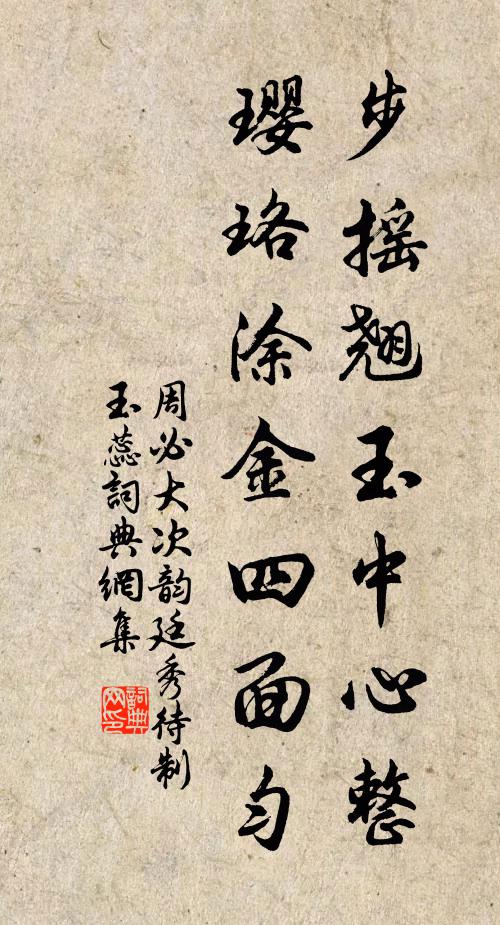 步摇翘玉中心整
璎珞涂金四面匀
周必大次韵廷秀待制
玉蕊詞典網集
詞典网印